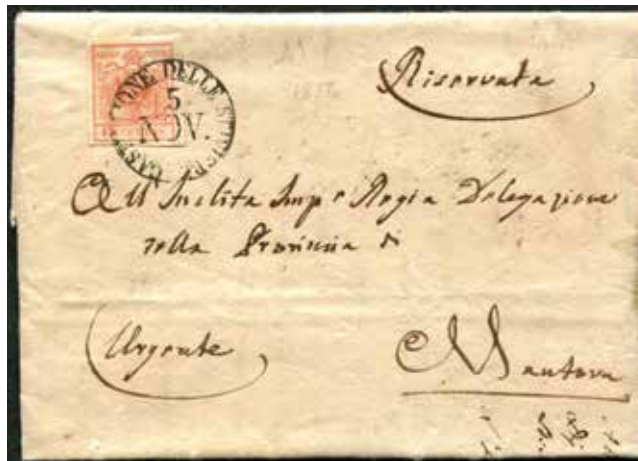 Riservata
CASTIGLIONE DELLE STIVIERE
5
NOV.
All Inclita Imp e Regia Delegazione
della Provincia di
Urgente
Mantova